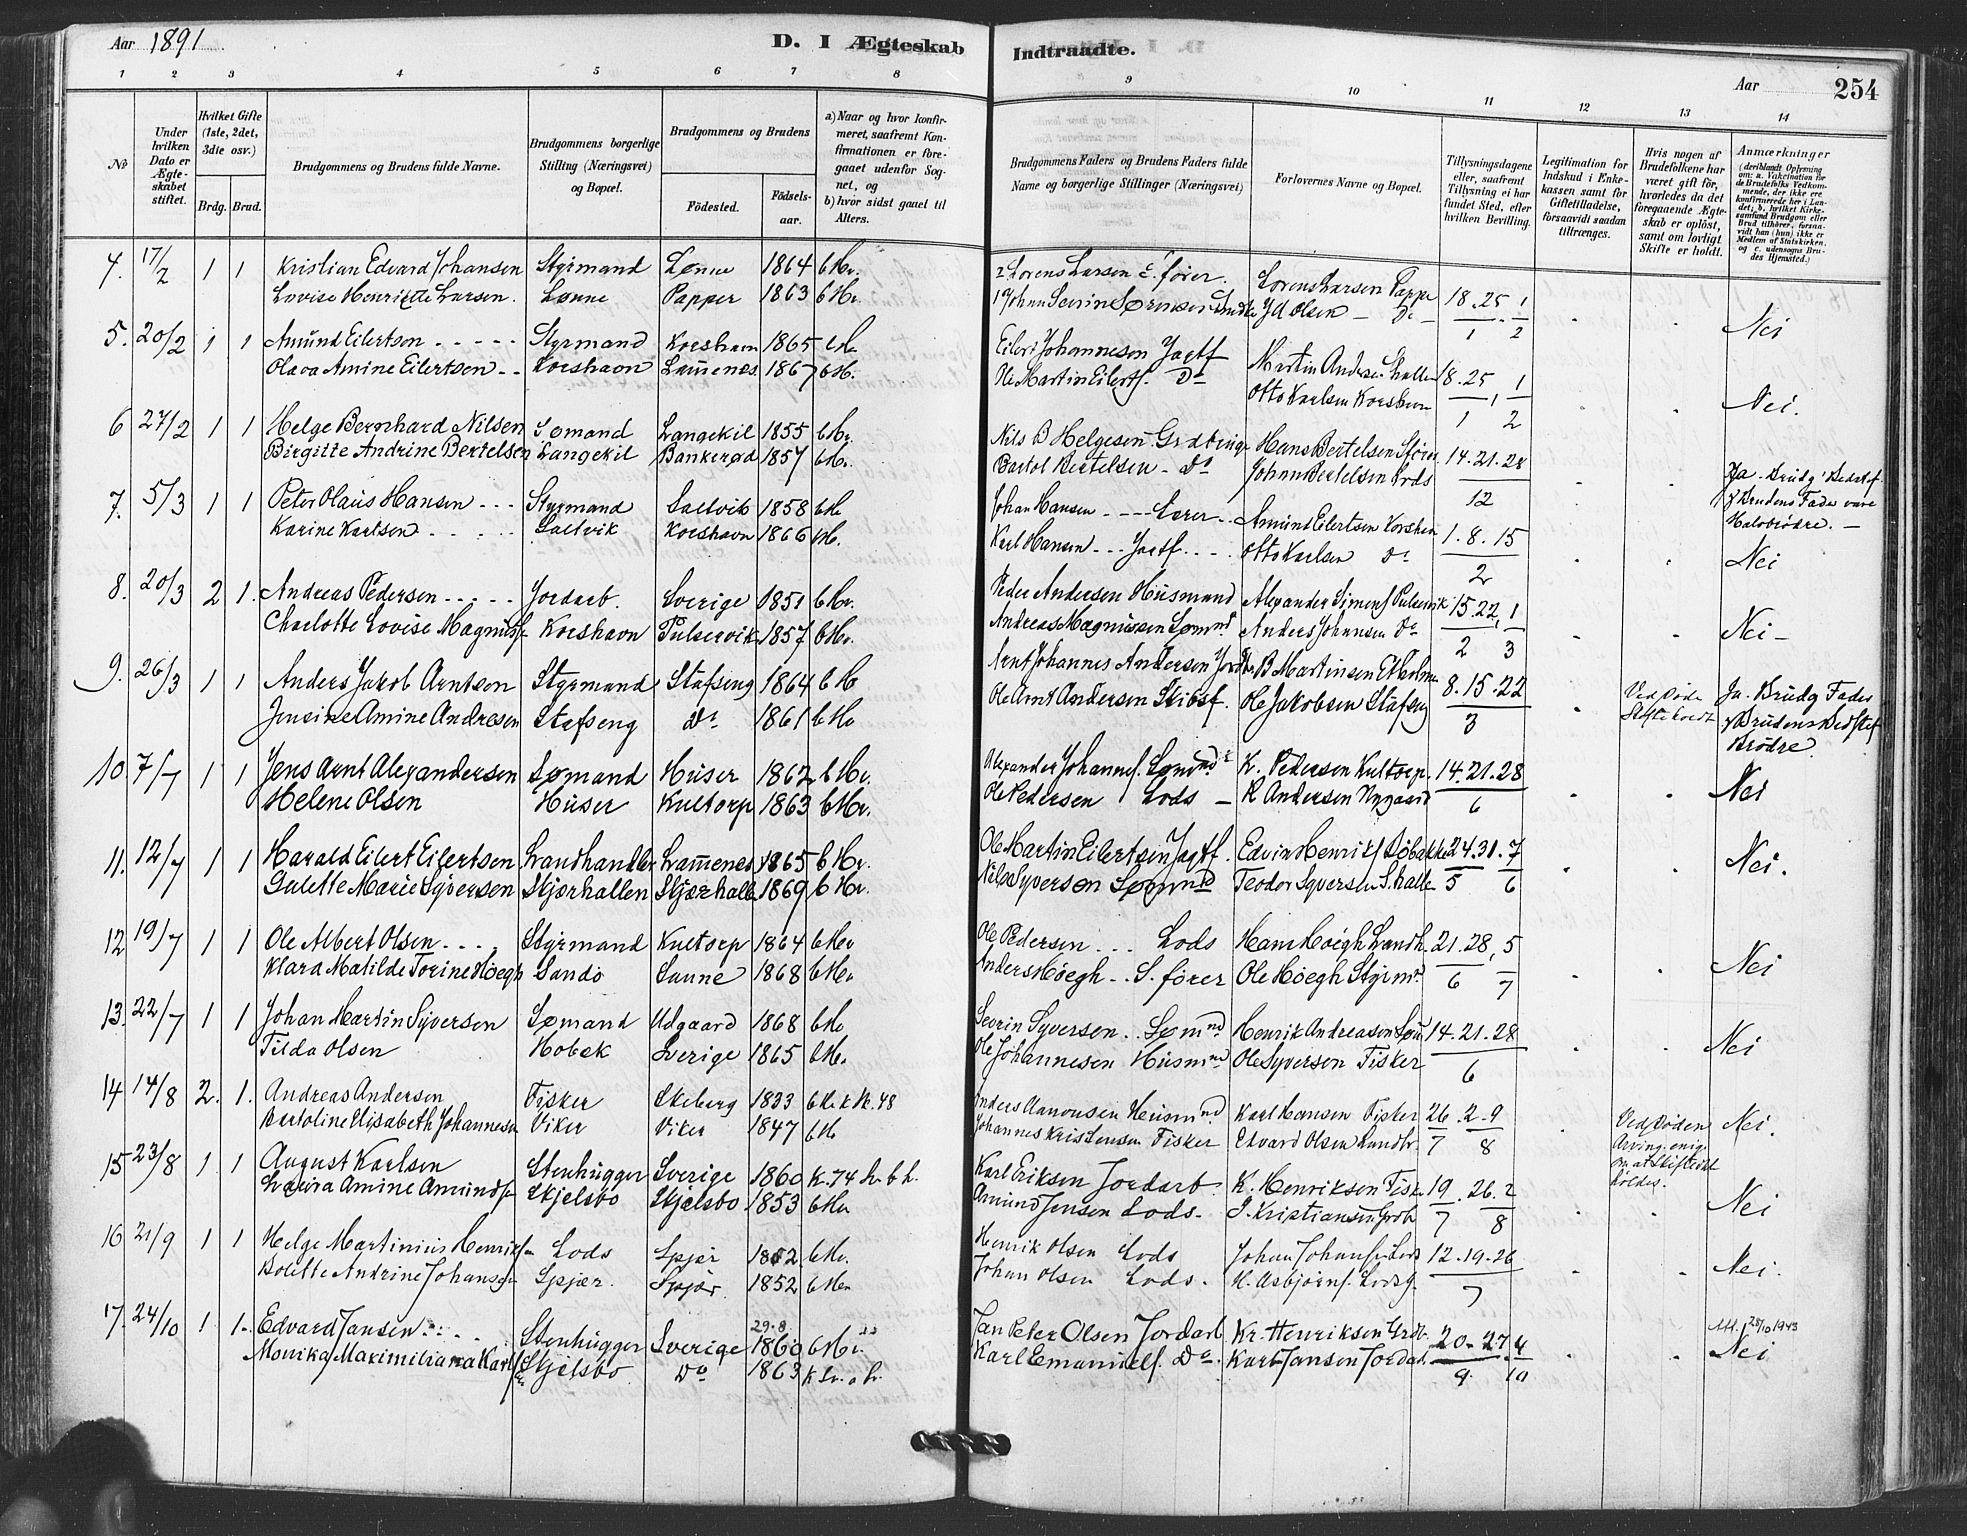 Aar 1891
D. I Ægteskab Indtraadte.
Aar 254
1 2 3 4 5 6 7 8 9 10 11 12 13 14
No
Under hvilken Dato er Ægteskabet stiftet.
Hvilket Gifte (1ste, 2det, 3die osv.)
Brdg. Brud.
Brudgommens og Brudens fulde Navne.
Brudgommens borgerlige Stilling (Næringsvei) og Bopæl.
Brudgommens og Brudens
Fødested. Fødselsaar.
a) Naar og hvor konfirmeret, saafremt Konfirmationen er foregaaet udenfor Sognet, og
b) hvor sidst gaaet til Alters.
Brudgommens Faders og Brudens Faders fulde Navne og borgerlige Stillinger (Næringsvei)
Forlovernes Navne og Bopæl.
Tillysningsdagene eller, saafremt Tillysning ei har fundet Sted, efter hvilken Bevilling.
Legitimation for Indskud i Enkekassen samt for Giftetilladelse, forsaavidt saadan tiltrænges.
Hvis nogen af Brudefolkene har været gift før, hvorledes da det foregaaende Ægteskab er opløst, samt om lovligt Skifte er holdt.
Anmærkninger (deriblandt Oplysning om: a. Vakcination for de Brudefolks Vedkommende, der ikke ere konfirmerede her i Landet; b. hvilket Kirkesamfund Brudgom eller Brud tilhører, forsaavidt han (hun) ikke er Medlem af Statskirken, og c. udensogns Brudes Hjemsted.)
4. 17/2 1 1 Kristian Edvard Johansen Styrmand Lønne 1864 b Hv. Lorens Larsen fører. Lorens Larsen Papper 18. 25. 1 Nei
Lovise Henriette Larsen. Lønne Papper 1863 b Hv. Johan Severin Sørensen Olsen — Do — 1 2
5. 20/2 1 1 Amund Eilertsen Styrmand Korshavn 1865 b Hv Eilert Johannesen Jagtf Martin Anders. 18. 25. 1 Nei.
Olava Amine Eilertsen Korshavn Lammenes 1867 b Hv. Ole Martin Eilerts. Do Otto Karlsen Korshavn 1 2
6 27/2 1 1 Helge Bernhard Nilsen Sømand Langekil 1855 b Hv. Nils B Helgesen Hans Bertelsen 14. 21. 28 Ja Brudg. Bedstef
Birgitte Andrine Bertelsen Langekil Bankerød 1857 b Hv. Bertol Bertelsen – Do Johan Bertelsen Lods 12 & Brudens Fader vare Halvbrødre. —
7. 5/3 1 1 Peter Olaus Hansen Styrmand Saltvik 1858 b Hv Johan Hansen Lærer Amund Eilertsen Korshavn 1. 8. 15 Nei
Karine Karlsen Saltvik Korshavn 1866 b Hv. Karl Hansen Jagtf. Otto Karlsen Do 2
8. 20/3 2 1. Andreas Pedersen Jordarb. Sverige 1851 b Hv. Peder Andersen Husmand Alexander Simens. Pulservik 15. 22, 1 Nei –
Charlotte Lovise Magnuss. Korshavn Pulservik 1857 b Hv. Andreas Magnussen Sømnd Anders Johansen Do 2 3
9. 26/3 1 1 Anders Jakob Arntsen Styrmand Stafseng 1864 b Hv Arnt Johannes Andersen B Martinsen 8. 15. 22 Ved Døde Skifte holdt Ja. Brudg Fader
Jensine Amine Andresen Stafseng Do 1861 b Hv Ole Arnt Andersen Skibsf. Ole Jakobsen Stafseng 3 & Brudens Bedstef Brødre
10 7/7 1 1 Jens Arnt Alexandersen Sømand Huser 1862 b Hv. Alexander Johannes. Sømnd K. Pedersen Kultorp. 14. 21. 28 Nei
Helene Olsen Huser Kultorp 1863 b Hv. Ole Pedersen Lods – K Andersen Nygaard 6
11. 12/7 1 1 Harald Eilert Eilertsen Landhandler Lammenes 1865 b Hv. Ole Martin Eilertsen Jagtf. Edvin Henriks. 24. 31. 7 Nei.
Gulette Marie Syversen Skjærhallen Skjærhalle 1869 b Hv. Nils Syversen Sømnd Teodor Syversen S. halle 5 6
12 19/7 1 1 Ole Albert Olsen Styrmand Kultorp 1864 b Hv Ole Pedersen Lods Hans Høegh Landh. 21. 28, 5 Nei
Klara Matilde Torine Høegh Sandø Saune 1868 b Hv Anders Høegh S. fører Ole Høegh Styrmd 6 7
13. 22/7 1 1 Johan Martin Syversen Sømand Udgaard 1868 b Hv Severin Syversen. Sømnd Henrik Andreasen 14. 21. 28 Nei
Tilda Olsen Hobæk Sverige 1865 b Hv. Ole Johannesen Husmnd Ole Syversen Fisker 6
14 14/8 2. 1. Andreas Andersen Fisker Ekeberg 1833 b Hv k Hv. 48 Anders Husmnd. Karl Hansen Fisker 26. 2. 9 Ved Døden Nei.
Bertoline Elisabeth Johannesen Viker Viker 1847 b Hv Johannes Kristensen Fisker Edvard Olsen Landbr. 7 8 Arving. enig om at Skifte holdes.
15 23/8 1 1 August Karlsen Stenhugger Sverige 1860 K. 74 Sv b S. Karl Eriksen Jordarb. K. Henriksen Fisk. 19. 26. 2 Nei
Lovisa Amine Amunds. Skjelsbo Skjelsbo 1853 b Hv Amund Jensen Lods. Kristiansen 7 8
16 21/9 1 1 Helge Martinius Henriksen Lods Spjær 1852 b Hv. Henrik Olsen Lods Johan Johans. Lods 12. 19. 26 Nei.
Bolette Andrine Johansen Spjær. Spjær 1852 b Hv Johan Olsen Lods. H. Asbjørns. 7
17. 24/10 1 1. Edvard Jansen Stenhugger Sverige 29.8 1860 b Hv. Jan Peter Olsen Jordarb Kr. Henriksen 20. 27. 4 Att. 28/10 1943 Nei
Monika Maximiliana Karls Skjelsbo Do 1863 Karl Emanuels. Do Karl Jansen Jordarb. 9 10